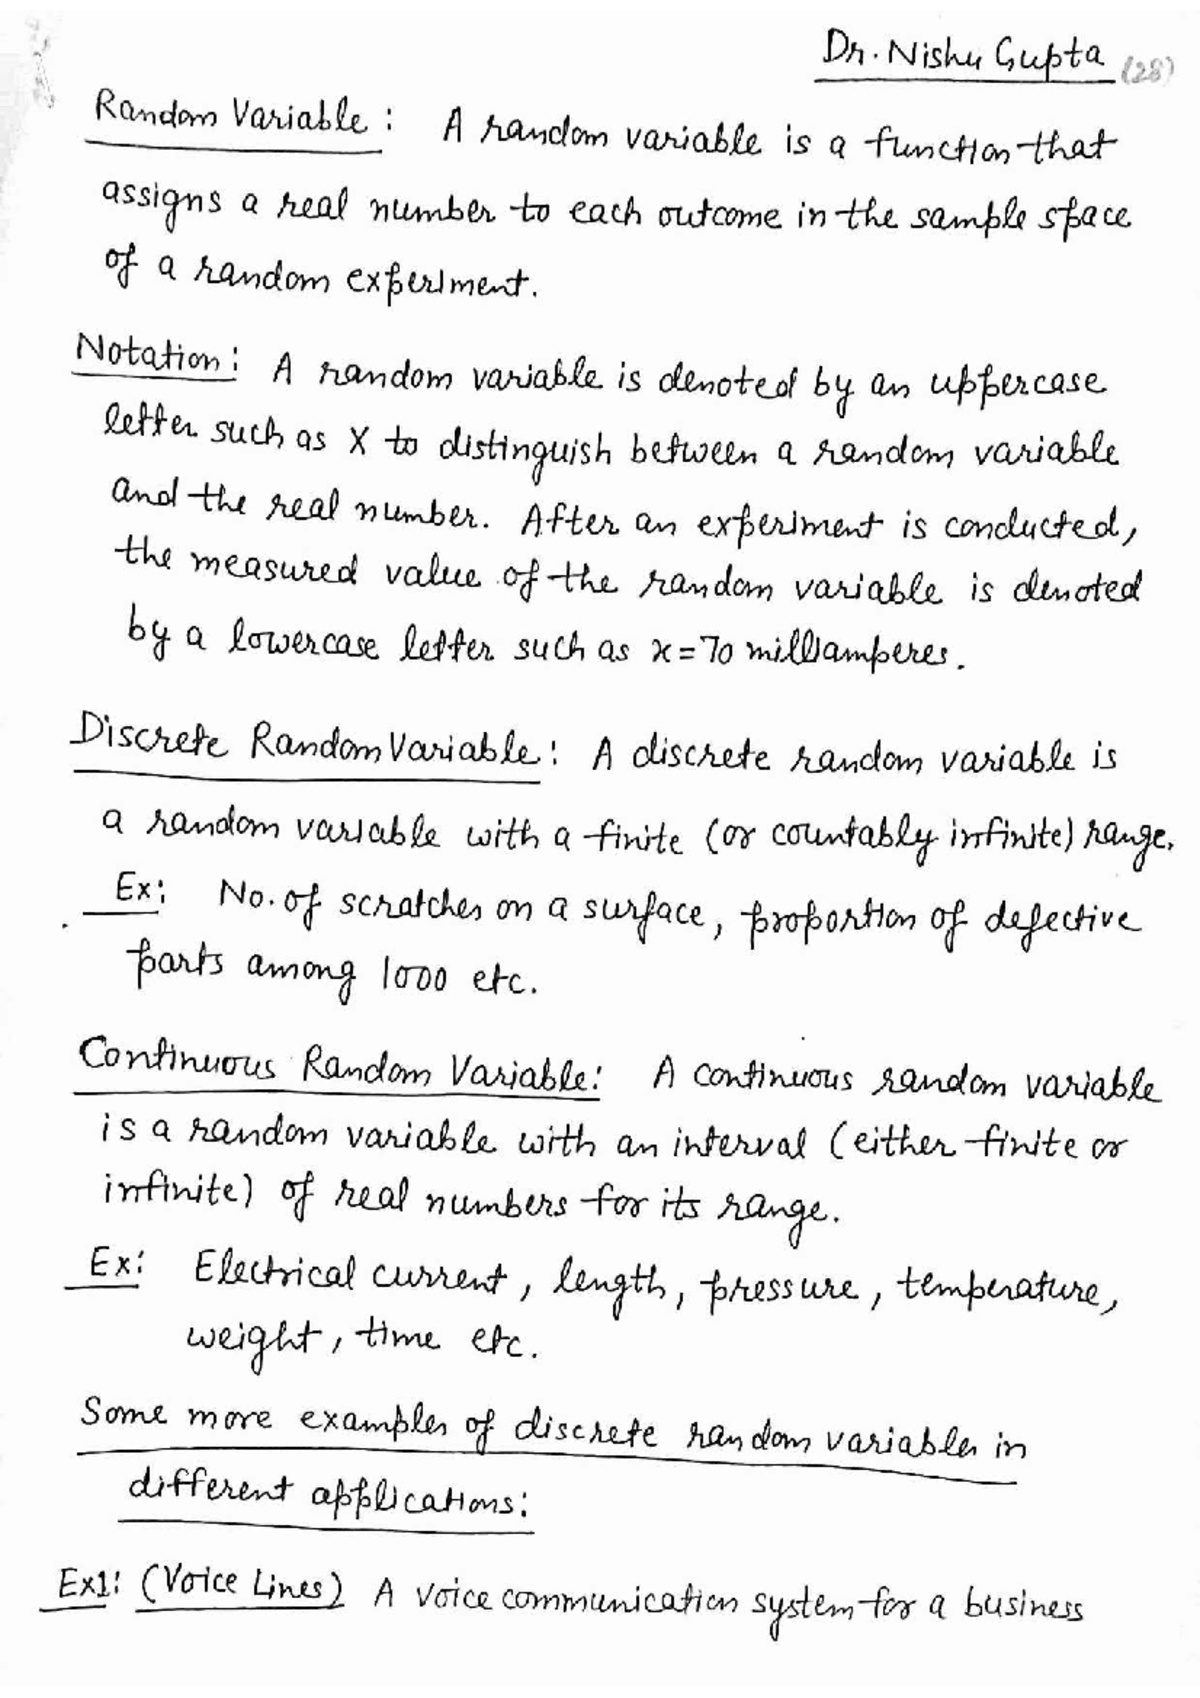 Dr. Nishu Gupta (28)
Random Variable : A random variable is a function that
assigns a real number to each outcome in the sample space
of a random experiment.
Notation : A random variable is denoted by an uppercase
letter such as X to distinguish between a random variable
and the real number. After an experiment is conducted,
the measured value of the random variable is denoted
by a lowercase letter such as x = 70 milliamperes.
Discrete Random Variable : A discrete random variable is
a random variable with a finite (or countably infinite) range.
Ex: No. of scratches on a surface, proportion of defective
parts among 1000 etc.
Continuous Random Variable: A continuous random variable
is a random variable with an interval (either finite or
infinite) of real numbers for its range.
Ex: Electrical current, length, pressure, temperature,
weight, time etc.
Some more examples of discrete random variables in
different applications:
Ex1: (Voice Lines) A voice communication system for a business